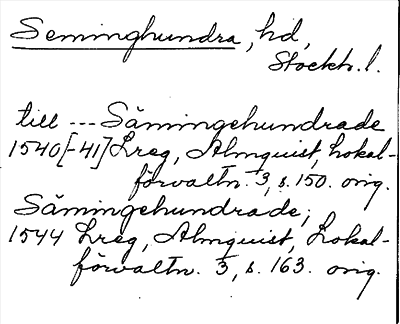 Seminghundra, hd,
Stockh. l.
till --- Sämingehundrade
1540[-41] Lreg, Almquist, Lokal-
förvaltn. 3, s. 150. orig.
Sämingehundrade,
1544 Lreg, Almquist, Lokal-
förvaltn. 3, s. 163. orig.